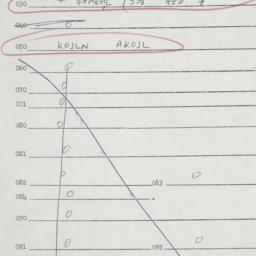 030
040 0
050 KOJLN AKOJL
060 0
070 0
071 0
080 0
081 0
082 0 083 0
084 0
090 0
091 0 092 0